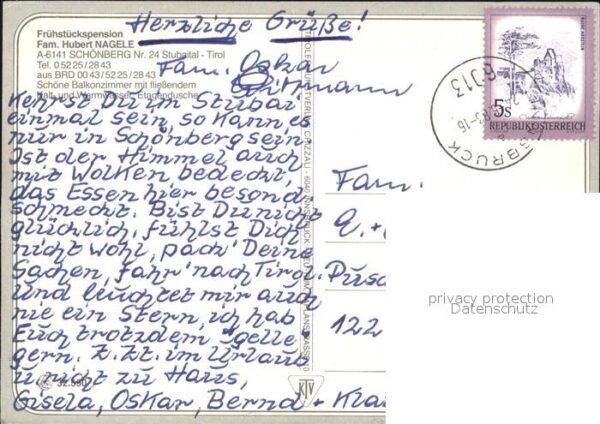 Herzliche Grüße!
Frühstückspension
Fam. Hubert NAGELE
A-6141 SCHÖNBERG Nr. 24 Stubaital - Tirol
Tel. 0 52 25 / 28 43
aus BRD 00 43 / 52 25 / 28 43
Schöne Balkonzimmer mit fließendem
Kalt- und Warmwasser, Etagendusche
Fam. Oskar
Kehrst Du im Stubai
einmal sein, so kann es
nur in Schönberg sein.
Ist der Himmel auch
mit Wolken bedeckt,
das Essen hier besond.
schmeckt. Bist Du nicht
glücklich, fühlst Dich
nicht wohl, pack' Deine
Sachen, fahr' nach Tirol.
Und leuchtet mir auch
nie ein Stern, ich hab
Euch trotzdem "gelle"
gern. z. Zt. im Urlaub
u. nicht zu Haus,
Gisela, Oskar, Bernd + Kla
Fam.
E. +
Pusc
122
5s
REPUBLIK ÖSTERREICH
6013
BRUCK
privacy protection
Datenschutz
KTV